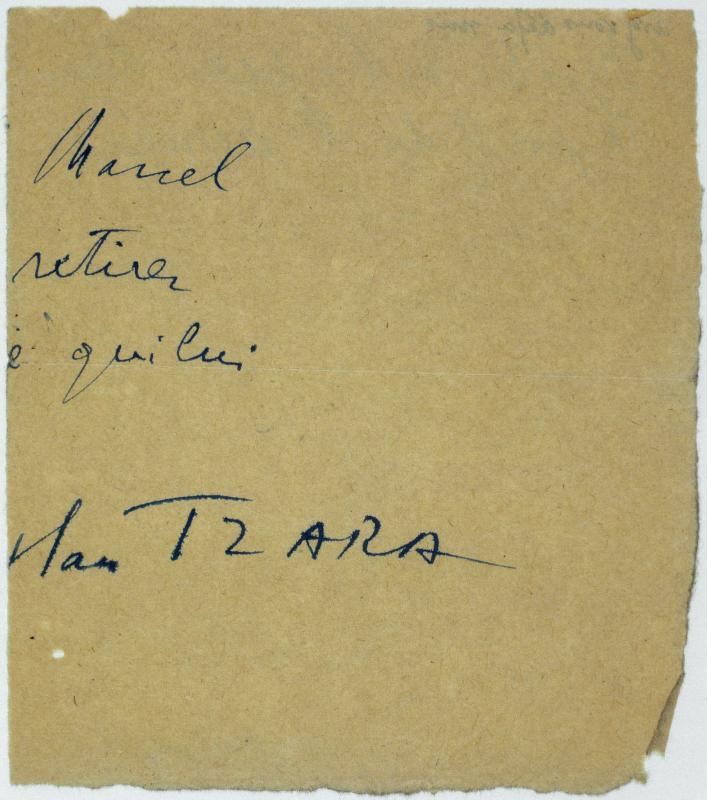 Marcel
retirer
é qui lui
stan TZARA